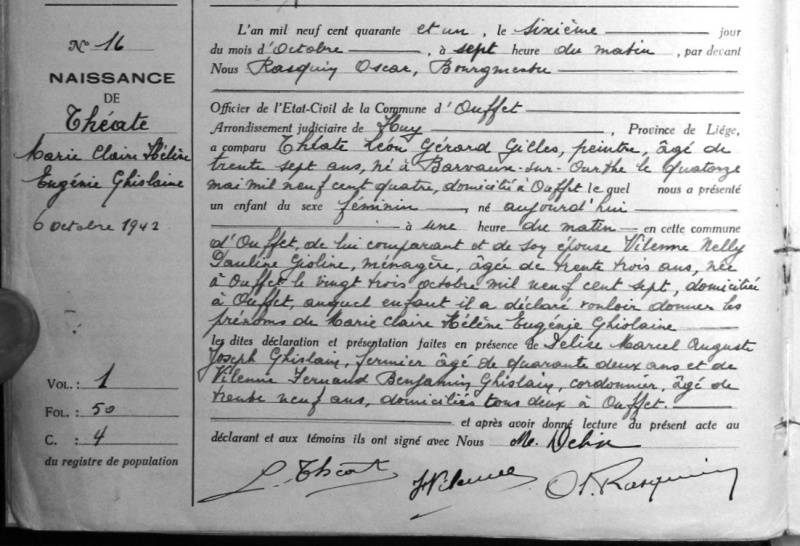 N° 16
NAISSANCE
DE
Théate
Marie Claire Hélène
Eugénie Ghislaine
6 octobre 1942
VOL. : 1
FOL. : 50
C. : 4
du registre de population
L'an mil neuf cent quarante et un, le sixième jour
du mois d'Octobre, à sept heure du matin, par devant
Nous Rasquin Oscar, Bourgmestre
Officier de l'Etat-Civil de la Commune d'Ouffet
Arrondissement judiciaire de Huy, Province de Liége,
a comparu Théate Léon Gérard Gilles, peintre, âgé de
trente sept ans, né à Barvaux-sur-Ourthe le quatorze
mai mil neuf cent quatre, domicilié à Ouffet le quel nous a présenté
un enfant du sexe féminin, né aujourd'hui
à une heure du matin en cette commune
d'Ouffet, de lui comparant et de son épouse Vilenne Nelly
Pauline Gioline, ménagère, âgée de trente trois ans, née
à Ouffet le vingt trois octobre mil neuf cent sept, domiciliée
à Ouffet, auquel enfant il a déclaré vouloir donner les
prénoms de Marie Claire Hélène Eugénie Ghislaine
les dites déclaration et présentation faites en présence de Delise Marcel Auguste
Joseph Ghislain, fermier âgé de quarante deux ans et de
Vilenne Fernand Benjamin Ghislain, cordonnier, âgé de
trente neuf ans, domiciliés tous deux à Ouffet.
et après avoir donné lecture du présent acte au
déclarant et aux témoins ils ont signé avec Nous M. Delise
L. Théate F. Vilenne O. Rasquin